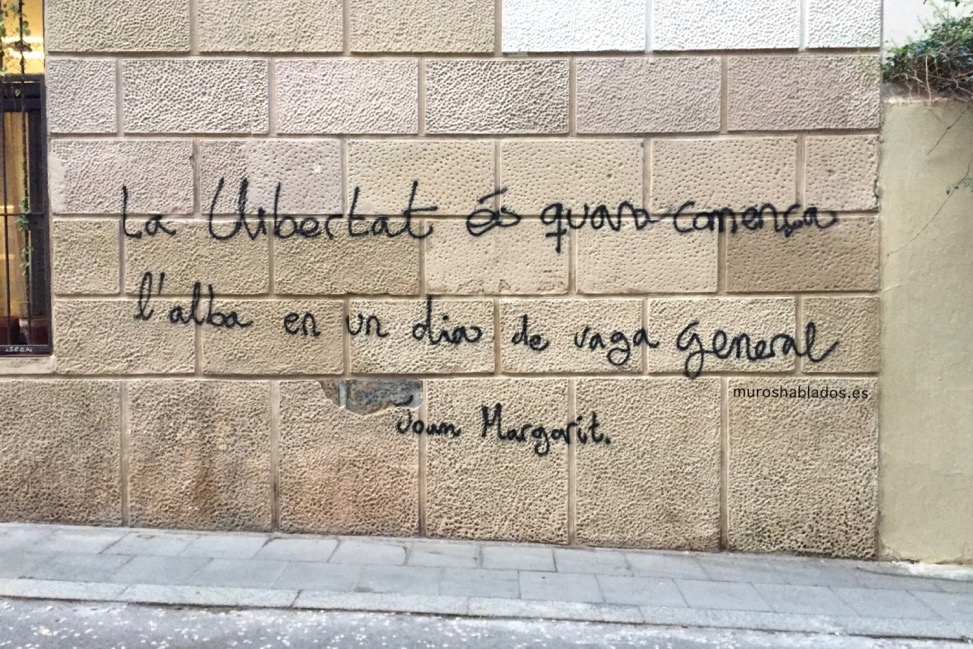 La Llibertat és quan comença
l'alba en un dia de vaga general
muroshablados.es
Joan Margarit.